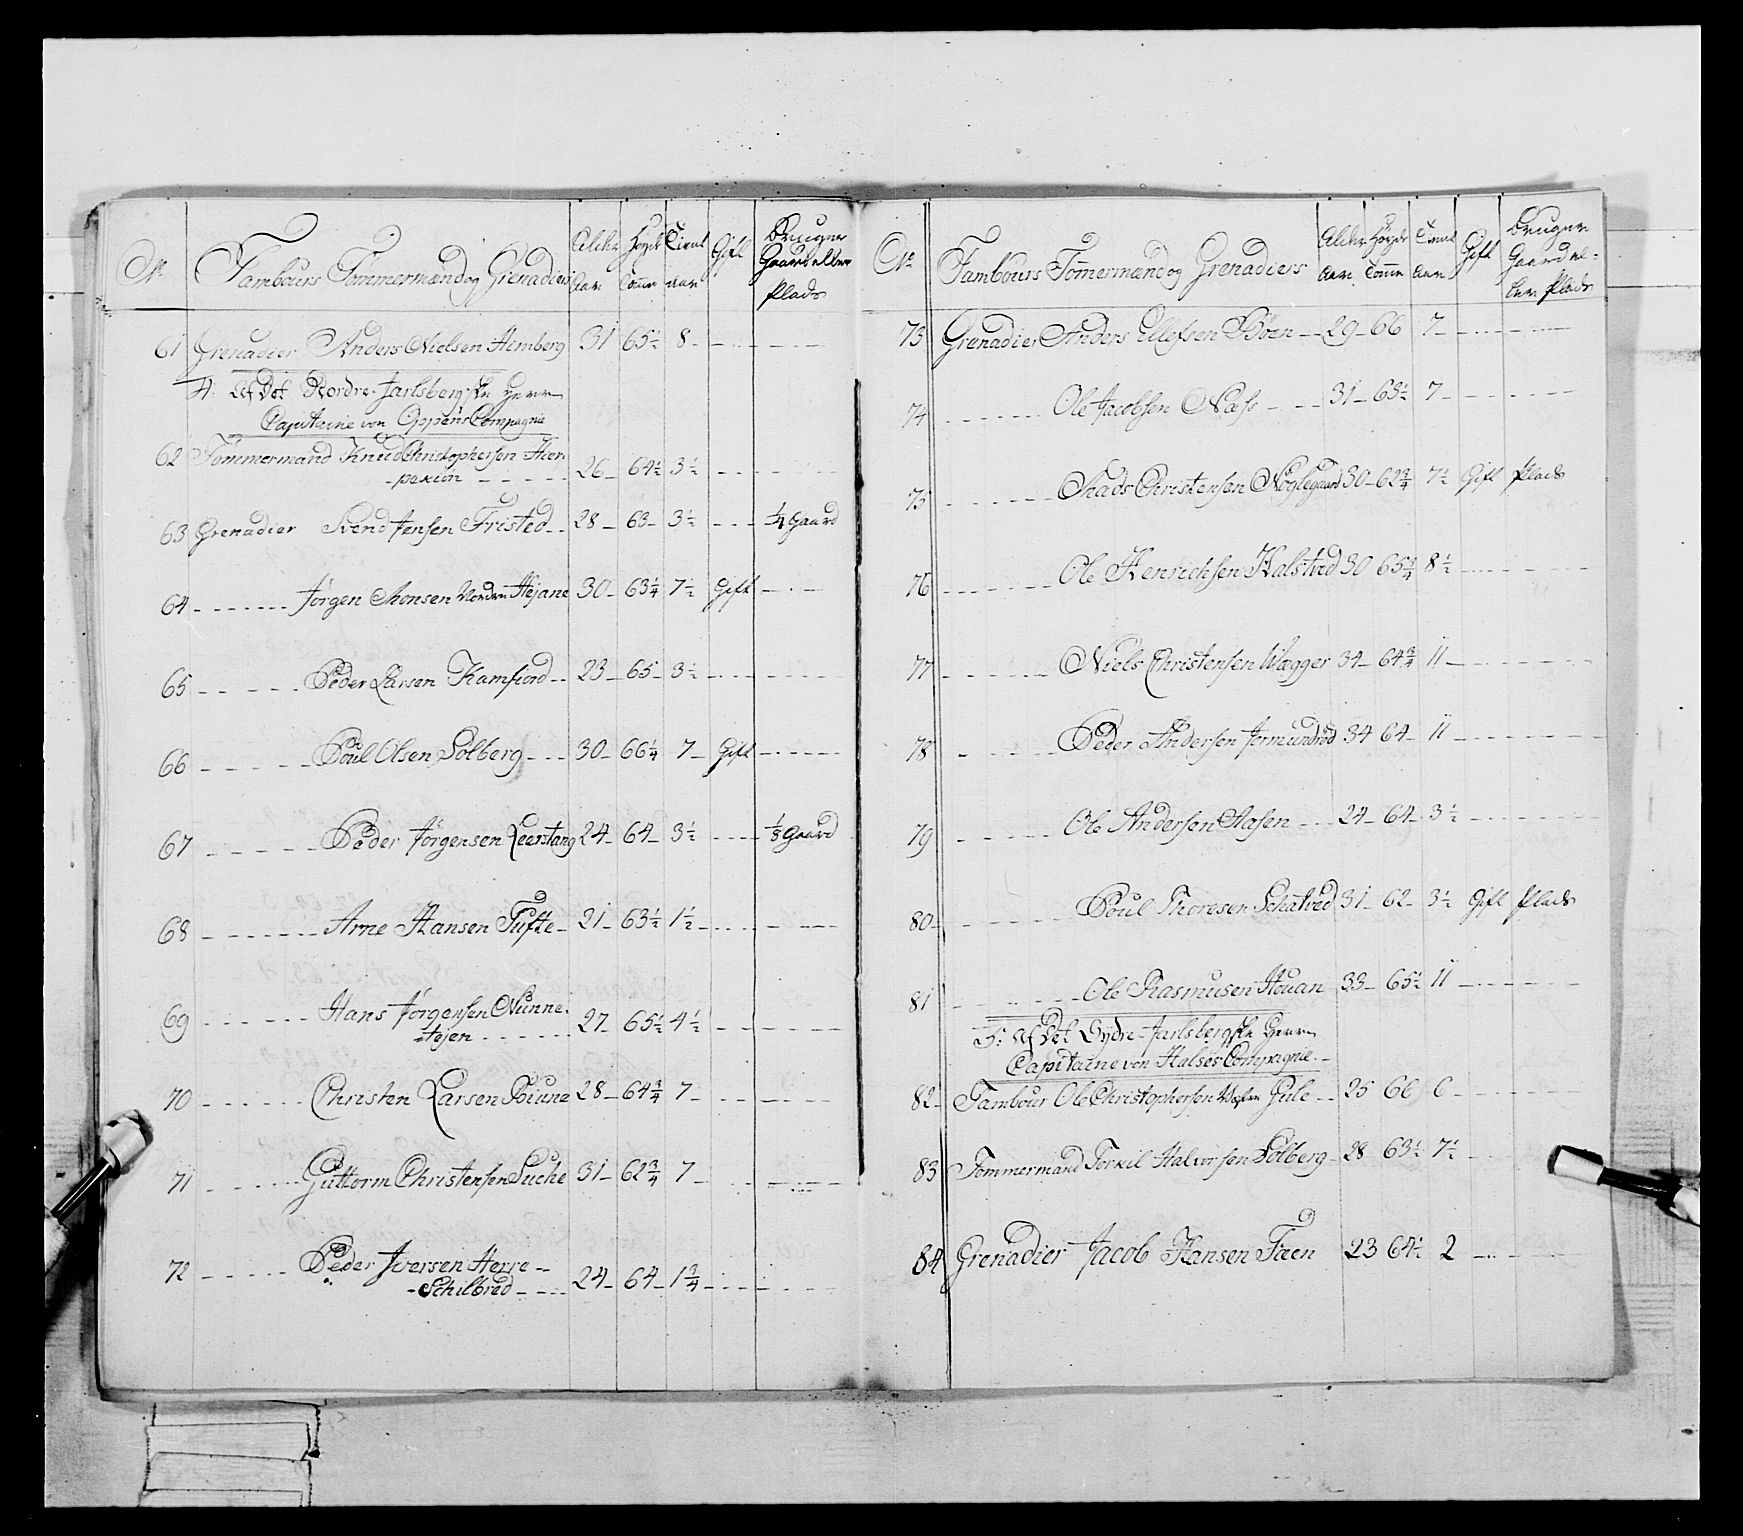 No Tambours Tømmermænd og Grenadiers Alder Aar Høyde Tomme Tient Aar Gift Bruger Gaard eller Plads
61 Grenadier Anders Nielsen Himberg 31 65½ 8
4. Af Det Nordre Jarlsbergske Herr
Capitaine von Compagnie
62 Tømmermand Knud Christophersen 26 64½ 3½
63 Grenadier Svend Jensen Tristed 28 63 3½ ¼ Gaard
64 Jørgen Monsen Nordre Hejane 30 63¼ 7½ Gift
65 Peder Larsen Kamfiord 23 65 3½
66 Poul Olsen Solberg 30 66¼ 7 Gift
67 Peder Jørgensen Leerstang 24 64 3½ ⅛ Gaard
68 Arne Hansen Tufte 21 63½ 1½
69 Hans Jørgensen Nunne-
stejen 27 65½ 4½
70 Christen Larsen 28 64¾ 7
71 Guttorm Christensen Suche 31 62¾ 7
72 Peder Iversen Herre-
Schilbred 24 64 1¾
No Tambours Tømmermænd og Grenadiers Alder Aar Høyde Tomme Tient Aar Gift Bruger Gaard el-
ler Plads
73 Grenadier Anders Ellefsen Böen 29 66 7
74 Ole Jacobsen Næss 31 63½ 7
75 Mads Christensen Nøglegaard 30 62¾ 7½ Gift Plads
76 Ole Henrichsen Halstvedt 30 65¾ 8½
77 Niels Christensen Wegger 34 64¾ 11
78 Peder Andersen Jermundrød 34 64 11
79 Ole Andersen Aasen 24 64 3½
80 Poul Thoresen Schatved 31 62 3½ Gift Plads
81 Ole Rasmusen Houan 33 65½ 11
5. Af Det Sydre Jarlsbergske Herr
Capitaine von Halses Compagnie
82 Tambour Ole Christophersen Gule 25 66 6
83 Tømmermand Torkil Halvorsen Solberg 28 63½ 7½
84 Grenadier Jacob Hansen Faen 23 64½ 2